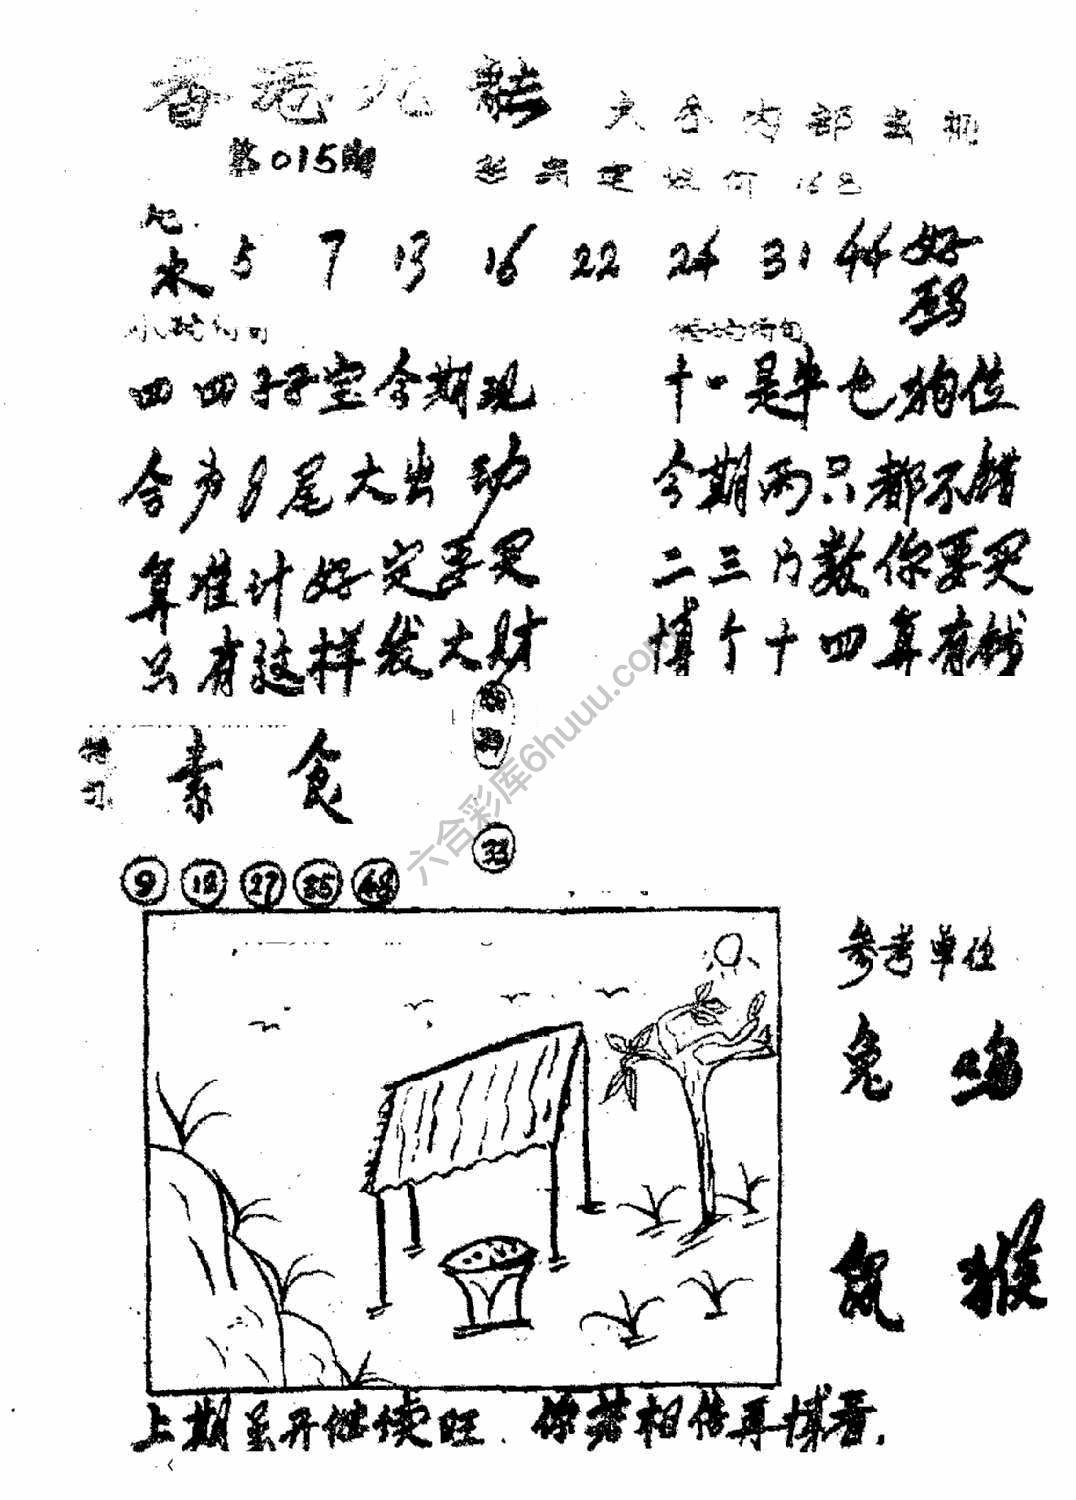 香港九龙
大参内部出机
第015期
168
水 5 7 13 16 22 24 31 44 好码
四四子子宝今期现 十一是牛也狗位
今为9尾大出动 今期两只都不错
算准计好定要买 二三门数你要买
只有这样发大财 博个十四算有钱
素食
33
9 12 27 35 48
参考单位
兔 鸡
鼠 猴
上期虽开继续旺.你若相信再博看.
六合彩库6huuu.com